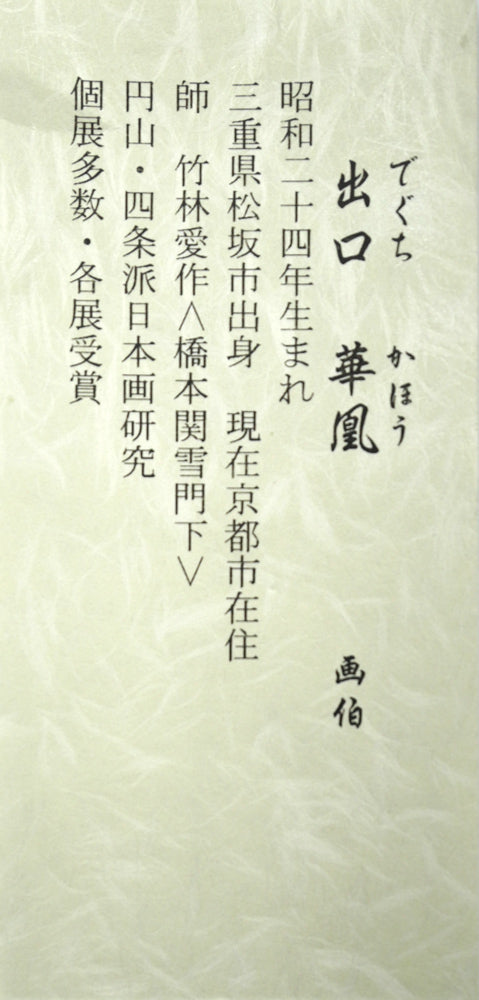 でぐち かほう
出口 華凰 画伯
昭和二十四年生まれ
三重県松坂市出身 現在京都市在住
師 竹林愛作＜橋本関雪門下＞
円山・四条派日本画研究
個展多数・各展受賞